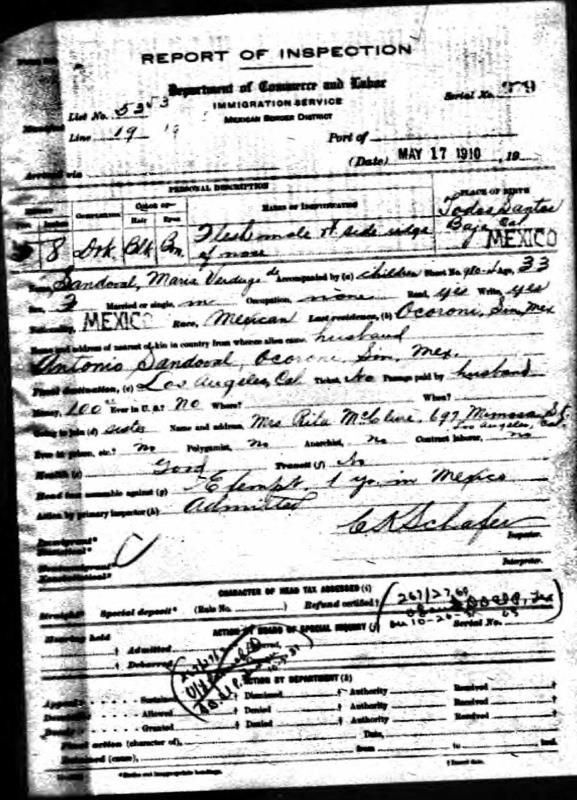 REPORT OF INSPECTION
Department of Commerce and Labor
IMMIGRATION SERVICE
MEXICAN BORDER DISTRICT
Serial No. 979
List No. 5253
Line 19 19
Port of
(Date) MAY 17 1910, 19
Arrived via
PERSONAL DESCRIPTION
PLACE OF BIRTH
COMPLEXION
COLOR OF—
Hair Eyes
MARKS OF IDENTIFICATION
Todos Santos
Baja Cal
MEXICO
5 8 Drk Blk Brn Flesh mole rt side ridge
of nose
Name, Sandoval, Maria Verdugo de Accompanied by (a) children Sheet No. 980-1 Age, 33
Sex, 3 Married or single, m Occupation, none Read, yes Write, yes
Nationality, MEXICO Race, Mexican Last residence, (b) Ocoroni, Sin, Mex
Name and address of nearest of kin in country from whence alien came, husband
Antonio Sandoval, Ocoroni, Sin, Mex.
Final destination, (c) Los Angeles, Cal Ticket, No Passage paid by husband
Money, 100 Ever in U. S.? No Where? When?
Going to join (d) sister Name and address, Mrs Rita McClure, 697 Mimosa St
Los Angeles, Cal.
Ever in prison, etc.? no Polygamist, no Anarchist, no Contract laborer, no
Health (e) Good Transit (f) No
Head tax assessable against (g) Exempt, 1 yr. in Mexico
Action by primary inspector (h) Admitted
C K Schafer
Inspector.
Immigrant*
Interpreter.
CHARACTER OF HEAD TAX ASSESSED (i)
Straight* Special deposit* (Rule No. ) Refund certified †
Serial No.
Hearing held
ACTION BY BOARD OF SPECIAL INQUIRY (j)
† Admitted
† Debarred
ACTION BY DEPARTMENT (k)
Appeal Sustained † Dismissed † Authority Received †
Allowed † Denied † Authority Received †
Granted † Denied † Authority Received †
Final action (character of), Date,
Detained (cause), from to incl.
*Strike out inappropriate headings.
† Insert date.